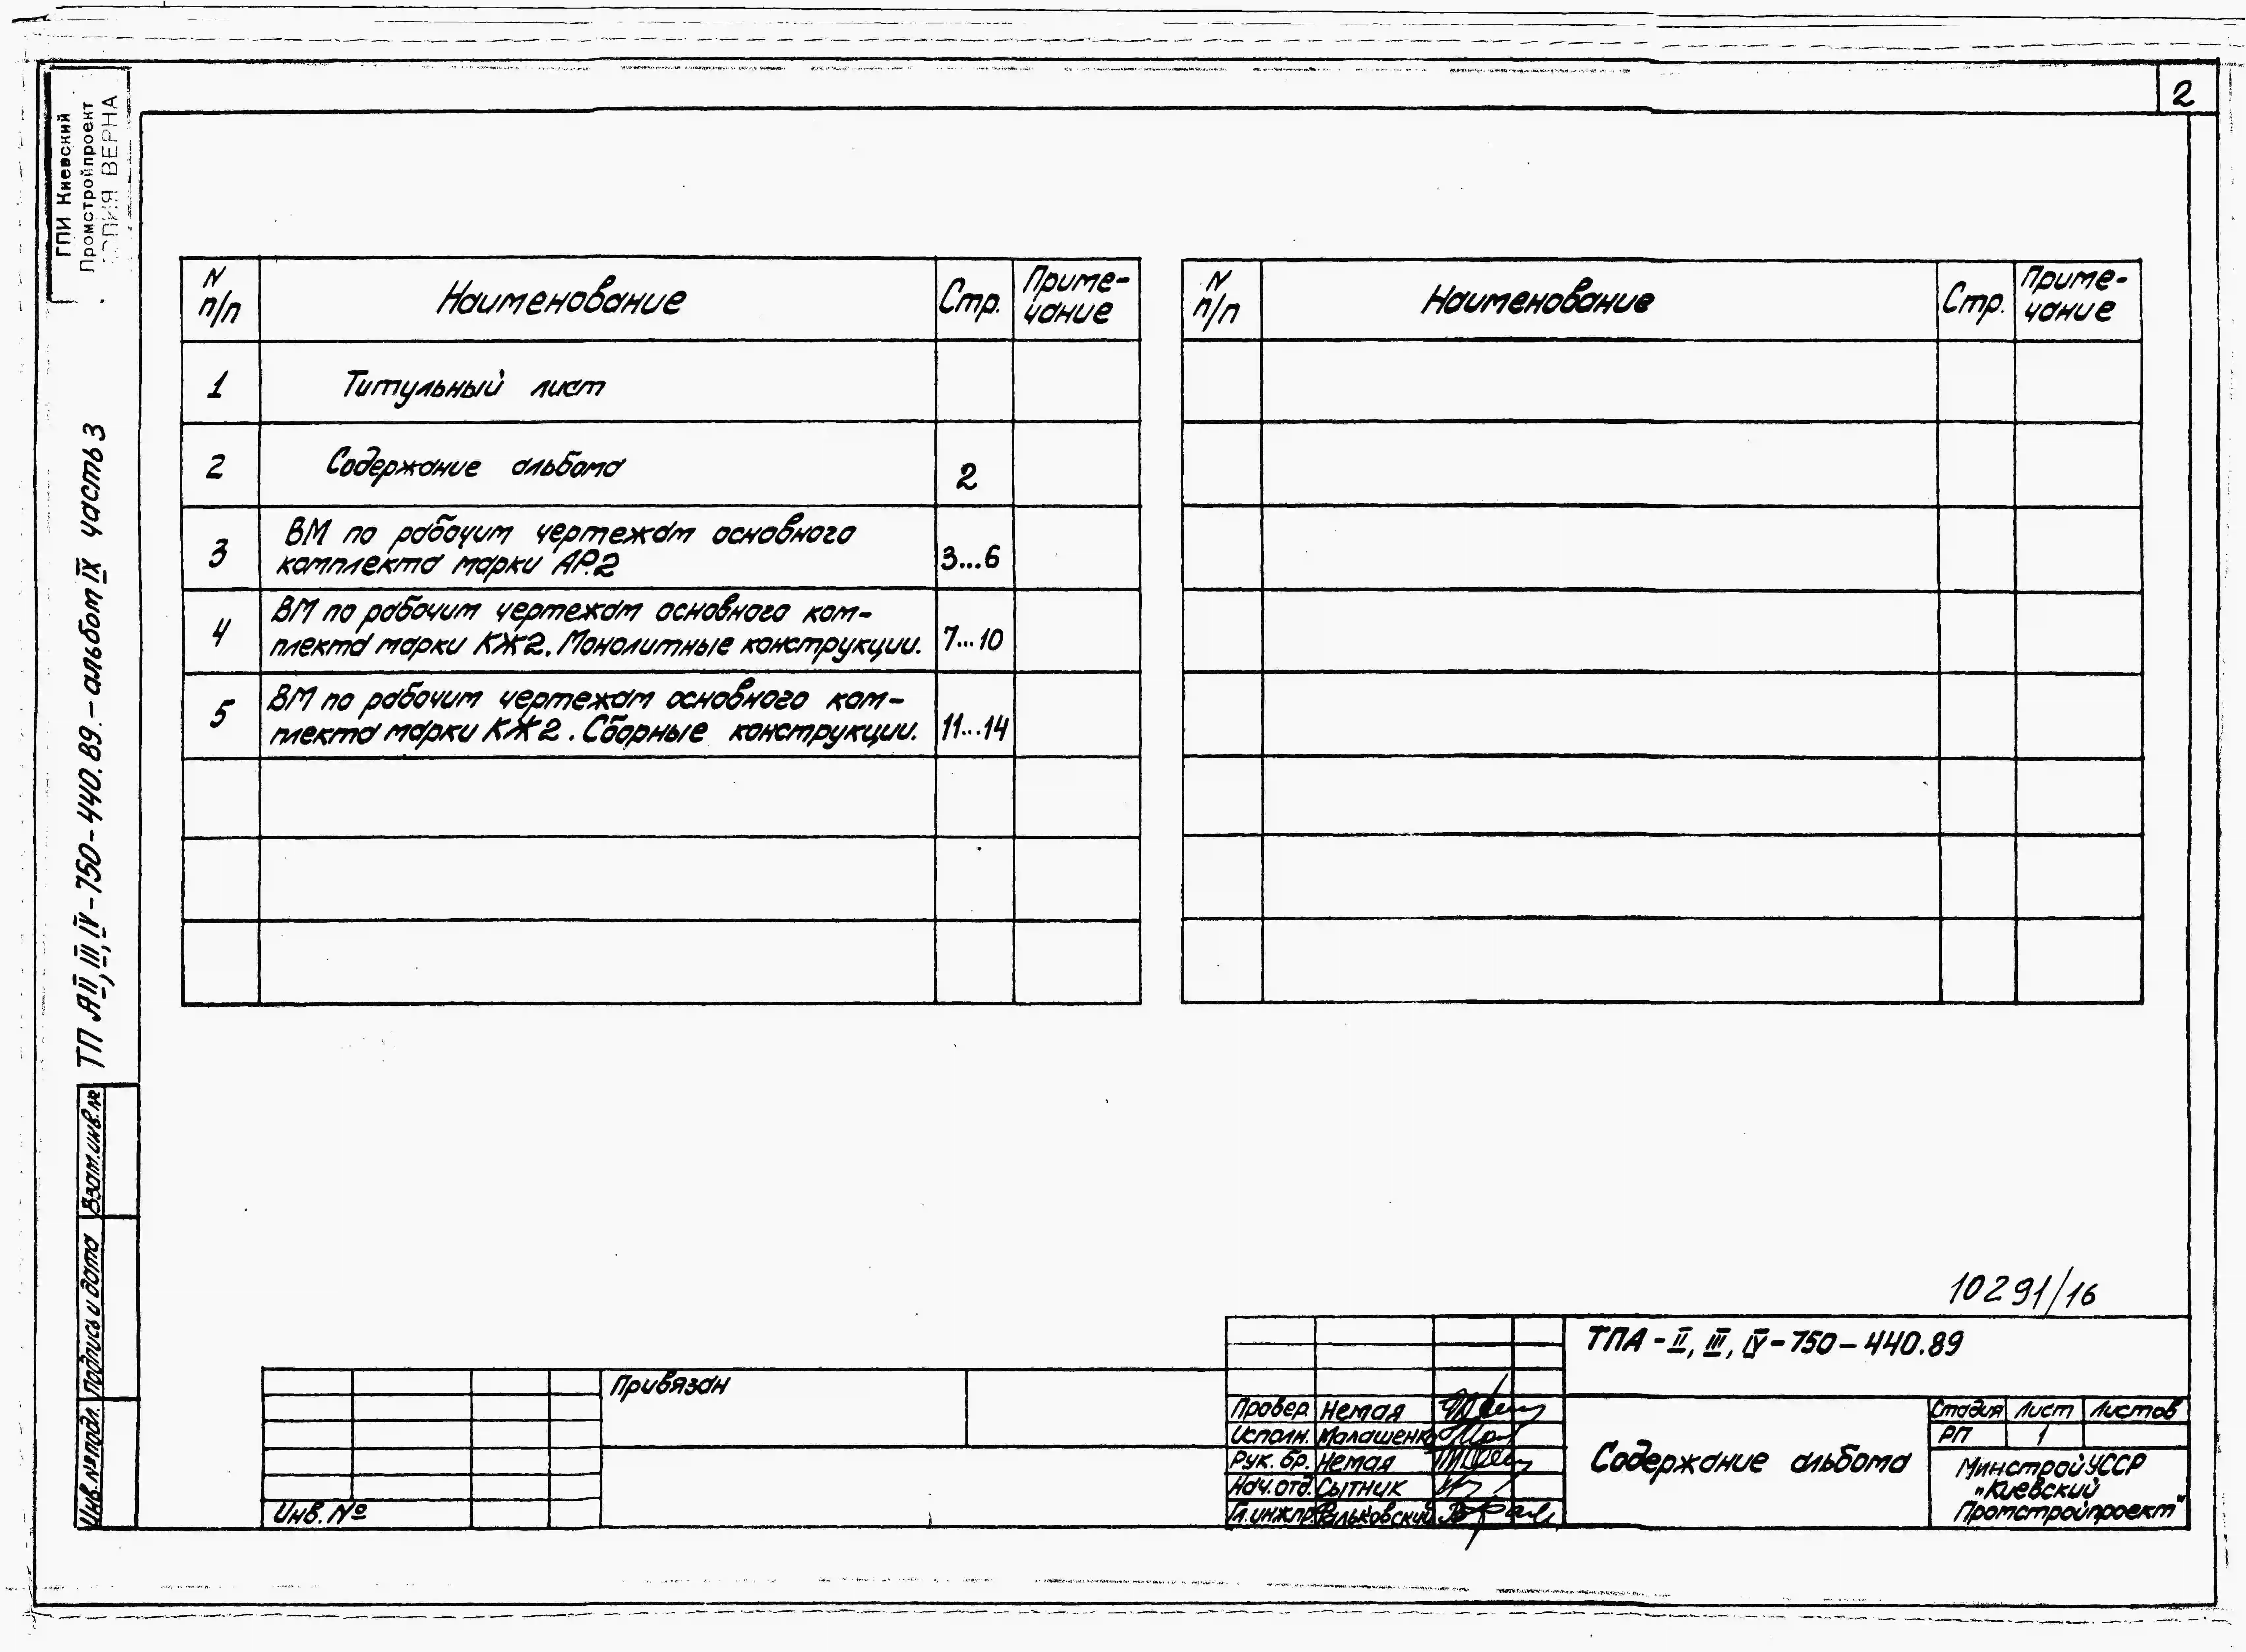 2
ГПИ Киевский
Промстройпроект
КОПИЯ ВЕРНА
ТП А II, III, IV-750-440.89.-альбом IX часть 3
N п/п Наименование Стр. Приме-
чание
1 Титульный лист
2 Содержание альбома 2
3 ВМ по рабочим чертежам основного
комплекта марки АР.2 3...6
4 ВМ по рабочим чертежам основного ком-
плекта марки КЖ2. Монолитные конструкции. 7...10
5 ВМ по рабочим чертежам основного ком-
плекта марки КЖ2. Сборные конструкции. 11...14
N п/п Наименование Стр. Приме-
чание
Взам.инв.№
Подпись и дата
Инв.№подл.
10291/16
ТПА-II, III, IV-750-440.89
Привязан
Инв. №
Провер. Немая
Исполн. Малашенко
Рук. бр. Немая
Нач.отд. Сытник
Гл.инж.пр. Фальковский
Содержание альбома
Стадия Лист Листов
РП 1
Минстрой УССР
"Киевский
Промстройпроект"